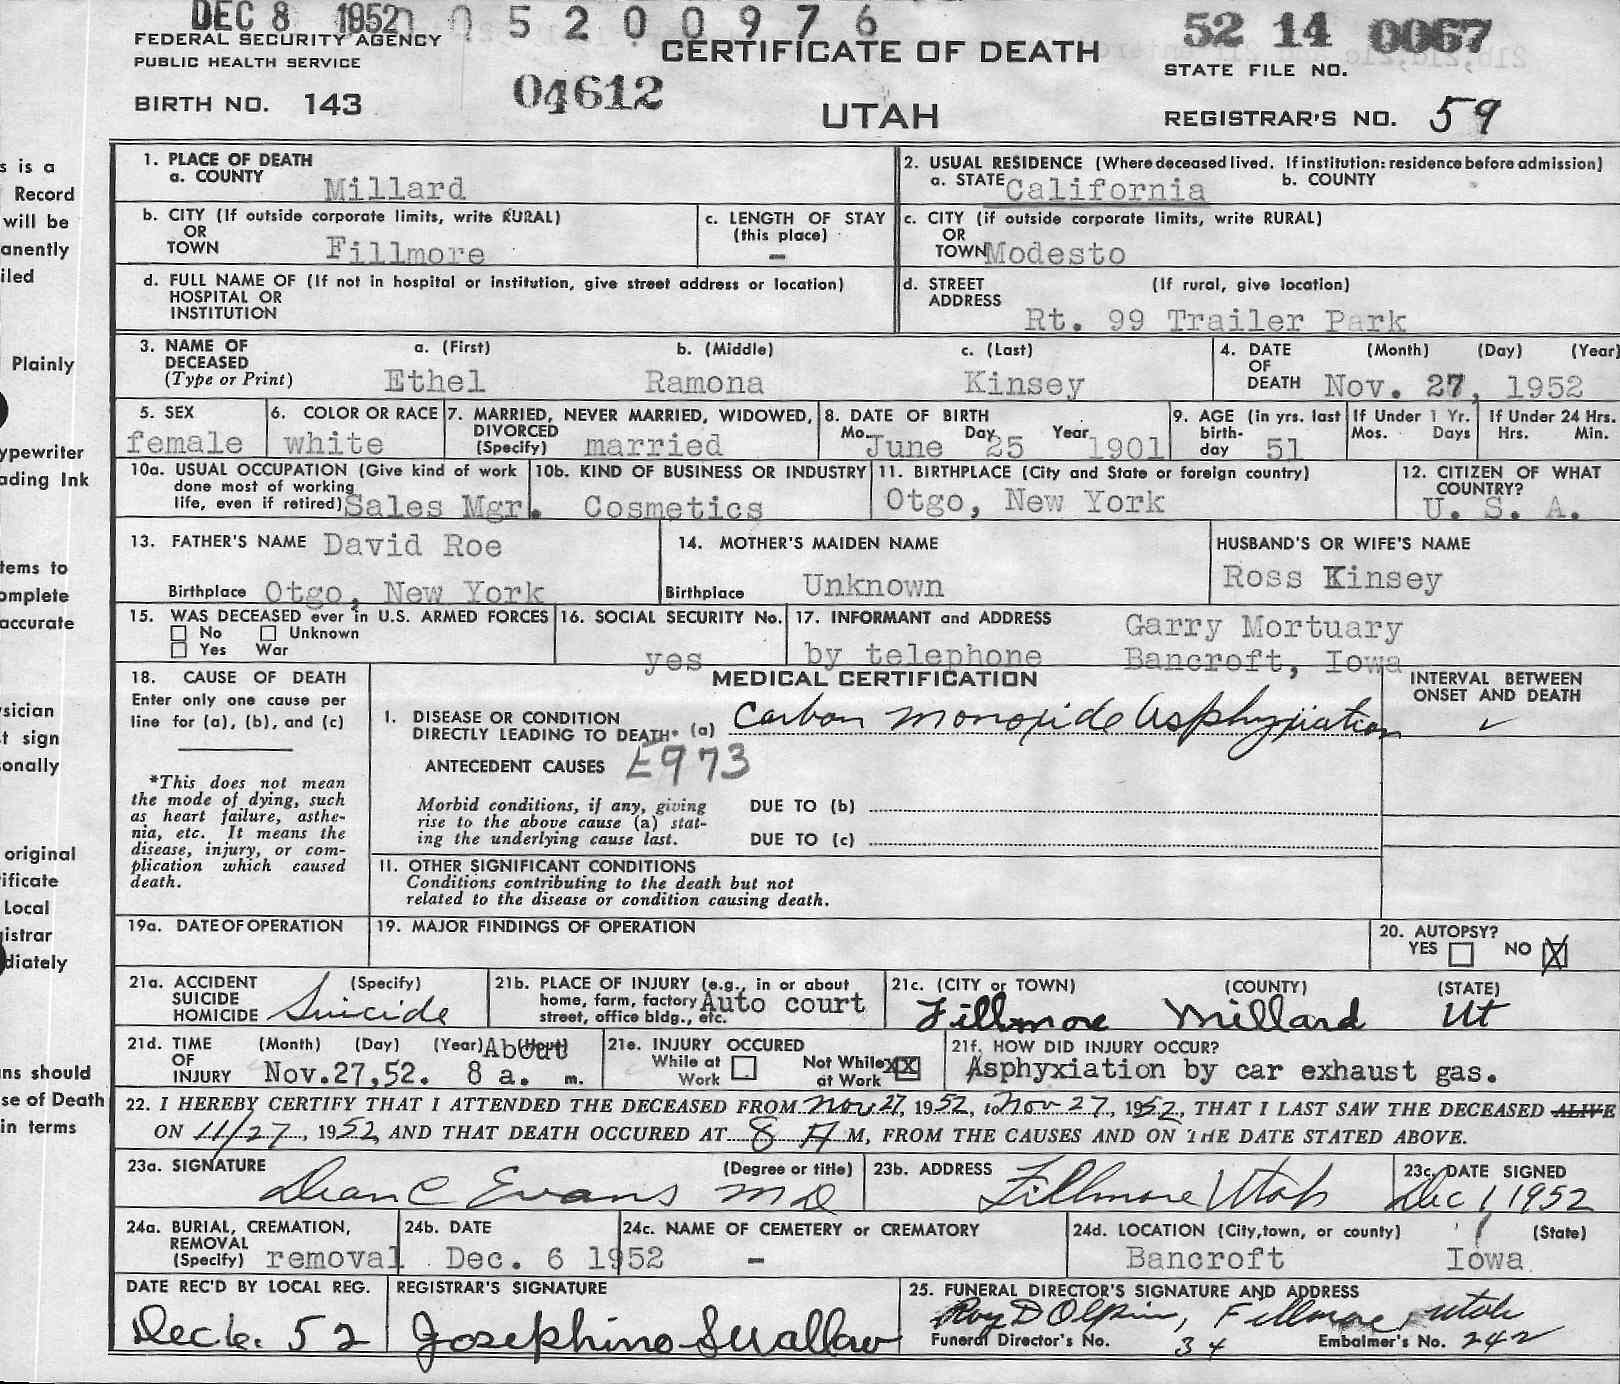 DEC 8 1952 0 5 2 0 0 9 7 6
52 14 0067
FEDERAL SECURITY AGENCY
PUBLIC HEALTH SERVICE
CERTIFICATE OF DEATH
STATE FILE NO.
BIRTH NO. 143
04612
UTAH
REGISTRAR'S NO. 59
s is a
Record
will be
anently
iled
Plainly
ypewriter
ading Ink
tems to
omplete
accurate
sician
t sign
onally
original
ificate
Local
istrar
diately
ns should
se of Death
in terms
1. PLACE OF DEATH
a. COUNTY Millard
2. USUAL RESIDENCE (Where deceased lived. If institution: residence before admission)
a. STATE California b. COUNTY
b. CITY (If outside corporate limits, write RURAL)
OR
TOWN Fillmore
c. LENGTH OF STAY
(this place)
-
c. CITY (if outside corporate limits, write RURAL)
OR
TOWN Modesto
d. FULL NAME OF (If not in hospital or institution, give street address or location)
HOSPITAL OR
INSTITUTION
d. STREET (If rural, give location)
ADDRESS
Rt. 99 Trailer Park
3. NAME OF DECEASED a. (First) b. (Middle) c. (Last)
(Type or Print) Ethel Ramona Kinsey
4. DATE (Month) (Day) (Year)
OF
DEATH Nov. 27, 1952
5. SEX
female
6. COLOR OR RACE
white
7. MARRIED, NEVER MARRIED, WIDOWED,
DIVORCED
(Specify) married
8. DATE OF BIRTH
Mo. June Day 25 Year 1901
9. AGE (in yrs. last
birth-
day 51
If Under 1 Yr.
Mos. Days
If Under 24 Hrs.
Hrs. Min.
10a. USUAL OCCUPATION (Give kind of work
done most of working
life, even if retired) Sales Mgr.
10b. KIND OF BUSINESS OR INDUSTRY
Cosmetics
11. BIRTHPLACE (City and State or foreign country)
Otgo, New York
12. CITIZEN OF WHAT
COUNTRY?
U. S. A.
13. FATHER'S NAME David Roe
Birthplace Otgo, New York
14. MOTHER'S MAIDEN NAME
Birthplace Unknown
HUSBAND'S OR WIFE'S NAME
Ross Kinsey
15. WAS DECEASED ever in U.S. ARMED FORCES
No Unknown
Yes War
16. SOCIAL SECURITY No.
yes
17. INFORMANT and ADDRESS Garry Mortuary
by telephone Bancroft, Iowa
18. CAUSE OF DEATH
Enter only one cause per
line for (a), (b), and (c)
*This does not mean
the mode of dying, such
as heart failure, asthe-
nia, etc. It means the
disease, injury, or com-
plication which caused
death.
MEDICAL CERTIFICATION
INTERVAL BETWEEN
ONSET AND DEATH
I. DISEASE OR CONDITION
DIRECTLY LEADING TO DEATH* (a) Carbon Monoxide Asphyxiation
ANTECEDENT CAUSES E973
Morbid conditions, if any, giving
rise to the above cause (a) stat-
ing the underlying cause last.
DUE TO (b)
DUE TO (c)
II. OTHER SIGNIFICANT CONDITIONS
Conditions contributing to the death but not
related to the disease or condition causing death.
19a. DATE OF OPERATION
19. MAJOR FINDINGS OF OPERATION
20. AUTOPSY?
YES NO X
21a. ACCIDENT (Specify)
SUICIDE
HOMICIDE Suicide
21b. PLACE OF INJURY (e.g., in or about
home, farm, factory
street, office bldg., etc. Auto court
21c. (CITY or TOWN) (COUNTY) (STATE)
Fillmore Millard Ut
21d. TIME (Month) (Day) (Year) (Hour) About
OF
INJURY Nov.27,52. 8 a. m.
21e. INJURY OCCURED
While at
Work
Not While
at Work XX
21f. HOW DID INJURY OCCUR?
Asphyxiation by car exhaust gas.
22. I HEREBY CERTIFY THAT I ATTENDED THE DECEASED FROM Nov 27, 1952, to Nov 27, 1952, THAT I LAST SAW THE DECEASED ALIVE
ON 11/27, 1952 AND THAT DEATH OCCURED AT 8 A M, FROM THE CAUSES AND ON THE DATE STATED ABOVE.
23a. SIGNATURE (Degree or title)
Dean C Evans MD
23b. ADDRESS
Fillmore Utah
23c. DATE SIGNED
Dec 1, 1952
24a. BURIAL, CREMATION,
REMOVAL
(Specify) removal
24b. DATE
Dec. 6 1952
24c. NAME OF CEMETERY or CREMATORY
-
24d. LOCATION (City, town, or county) (State)
Bancroft Iowa
DATE REC'D BY LOCAL REG.
Dec 6. 52
REGISTRAR'S SIGNATURE
Josephine Swallow
25. FUNERAL DIRECTOR'S SIGNATURE AND ADDRESS
Roy D Olpin, Fillmore, Utah
Funeral Director's No. 34 Embalmer's No. 242